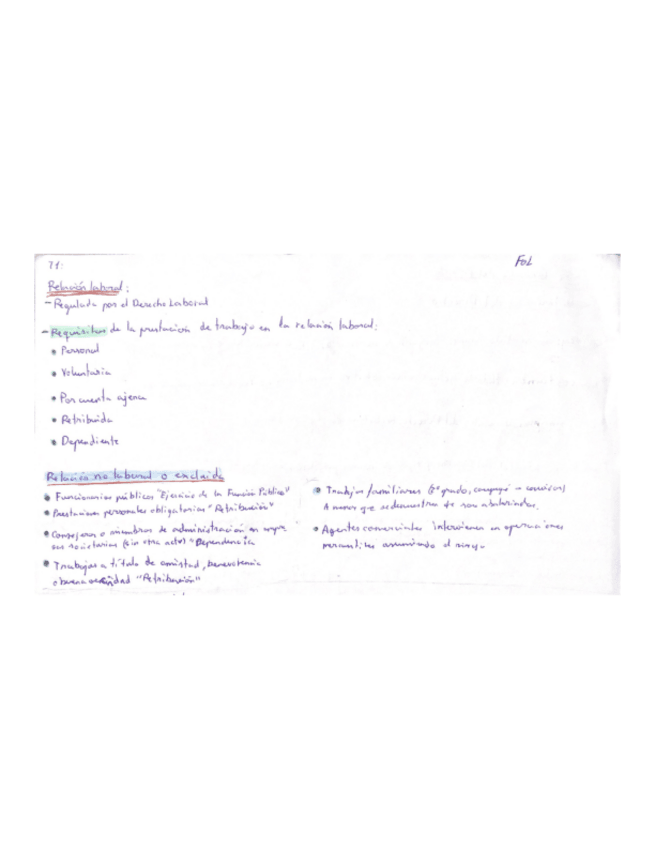 T1:
FOL
Relación laboral:
- Regulada por el Derecho Laboral
- Requisitos de la prestación de trabajo en la relación laboral:
• Personal
• Voluntaria
• Por cuenta ajena
• Retribuida
• Dependiente
Relación no laboral o excluida
• Funcionarios públicos "Ejercicio de la Función Pública"
• Prestaciones personales obligatorias "Retribución"
• Consejeros o miembros de administración en empre
sas societarias (sin otra activ) "Dependencia
• Trabajos a título de amistad, benevolencia
o buena vecindad "Retribución"
• Trabajos familiares (2º grado, conyugé - convivan)
A menos que se demuestre que son asalariados.
• Agentes comerciales intervienen en operaciones
mercantiles asumiendo el riesgo